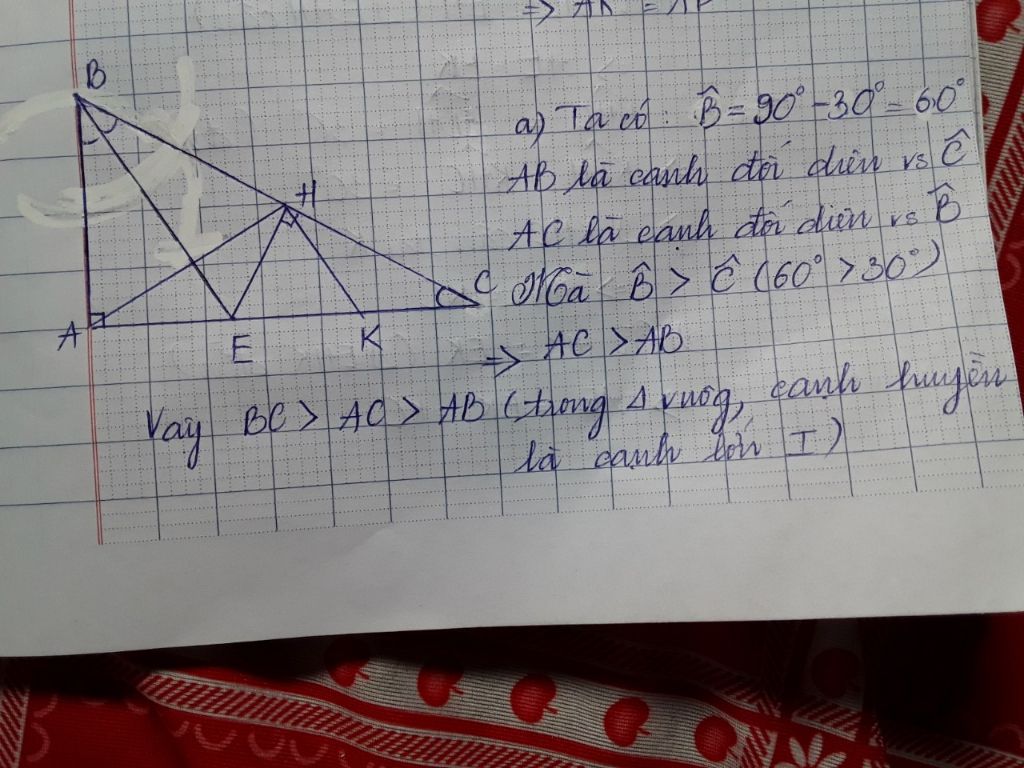 ⇒ AK = AP
B
a) Ta có: B̂ = 90° - 30° = 60°
AB là cạnh đối diện vs Ĉ
H
AC là cạnh đối diện vs B̂
C
Mà B̂ > Ĉ (60° > 30°)
A
E
K
⇒ AC > AB
Vậy BC > AC > AB (trong Δ vuôg, cạnh huyền
là cạnh lớn I)